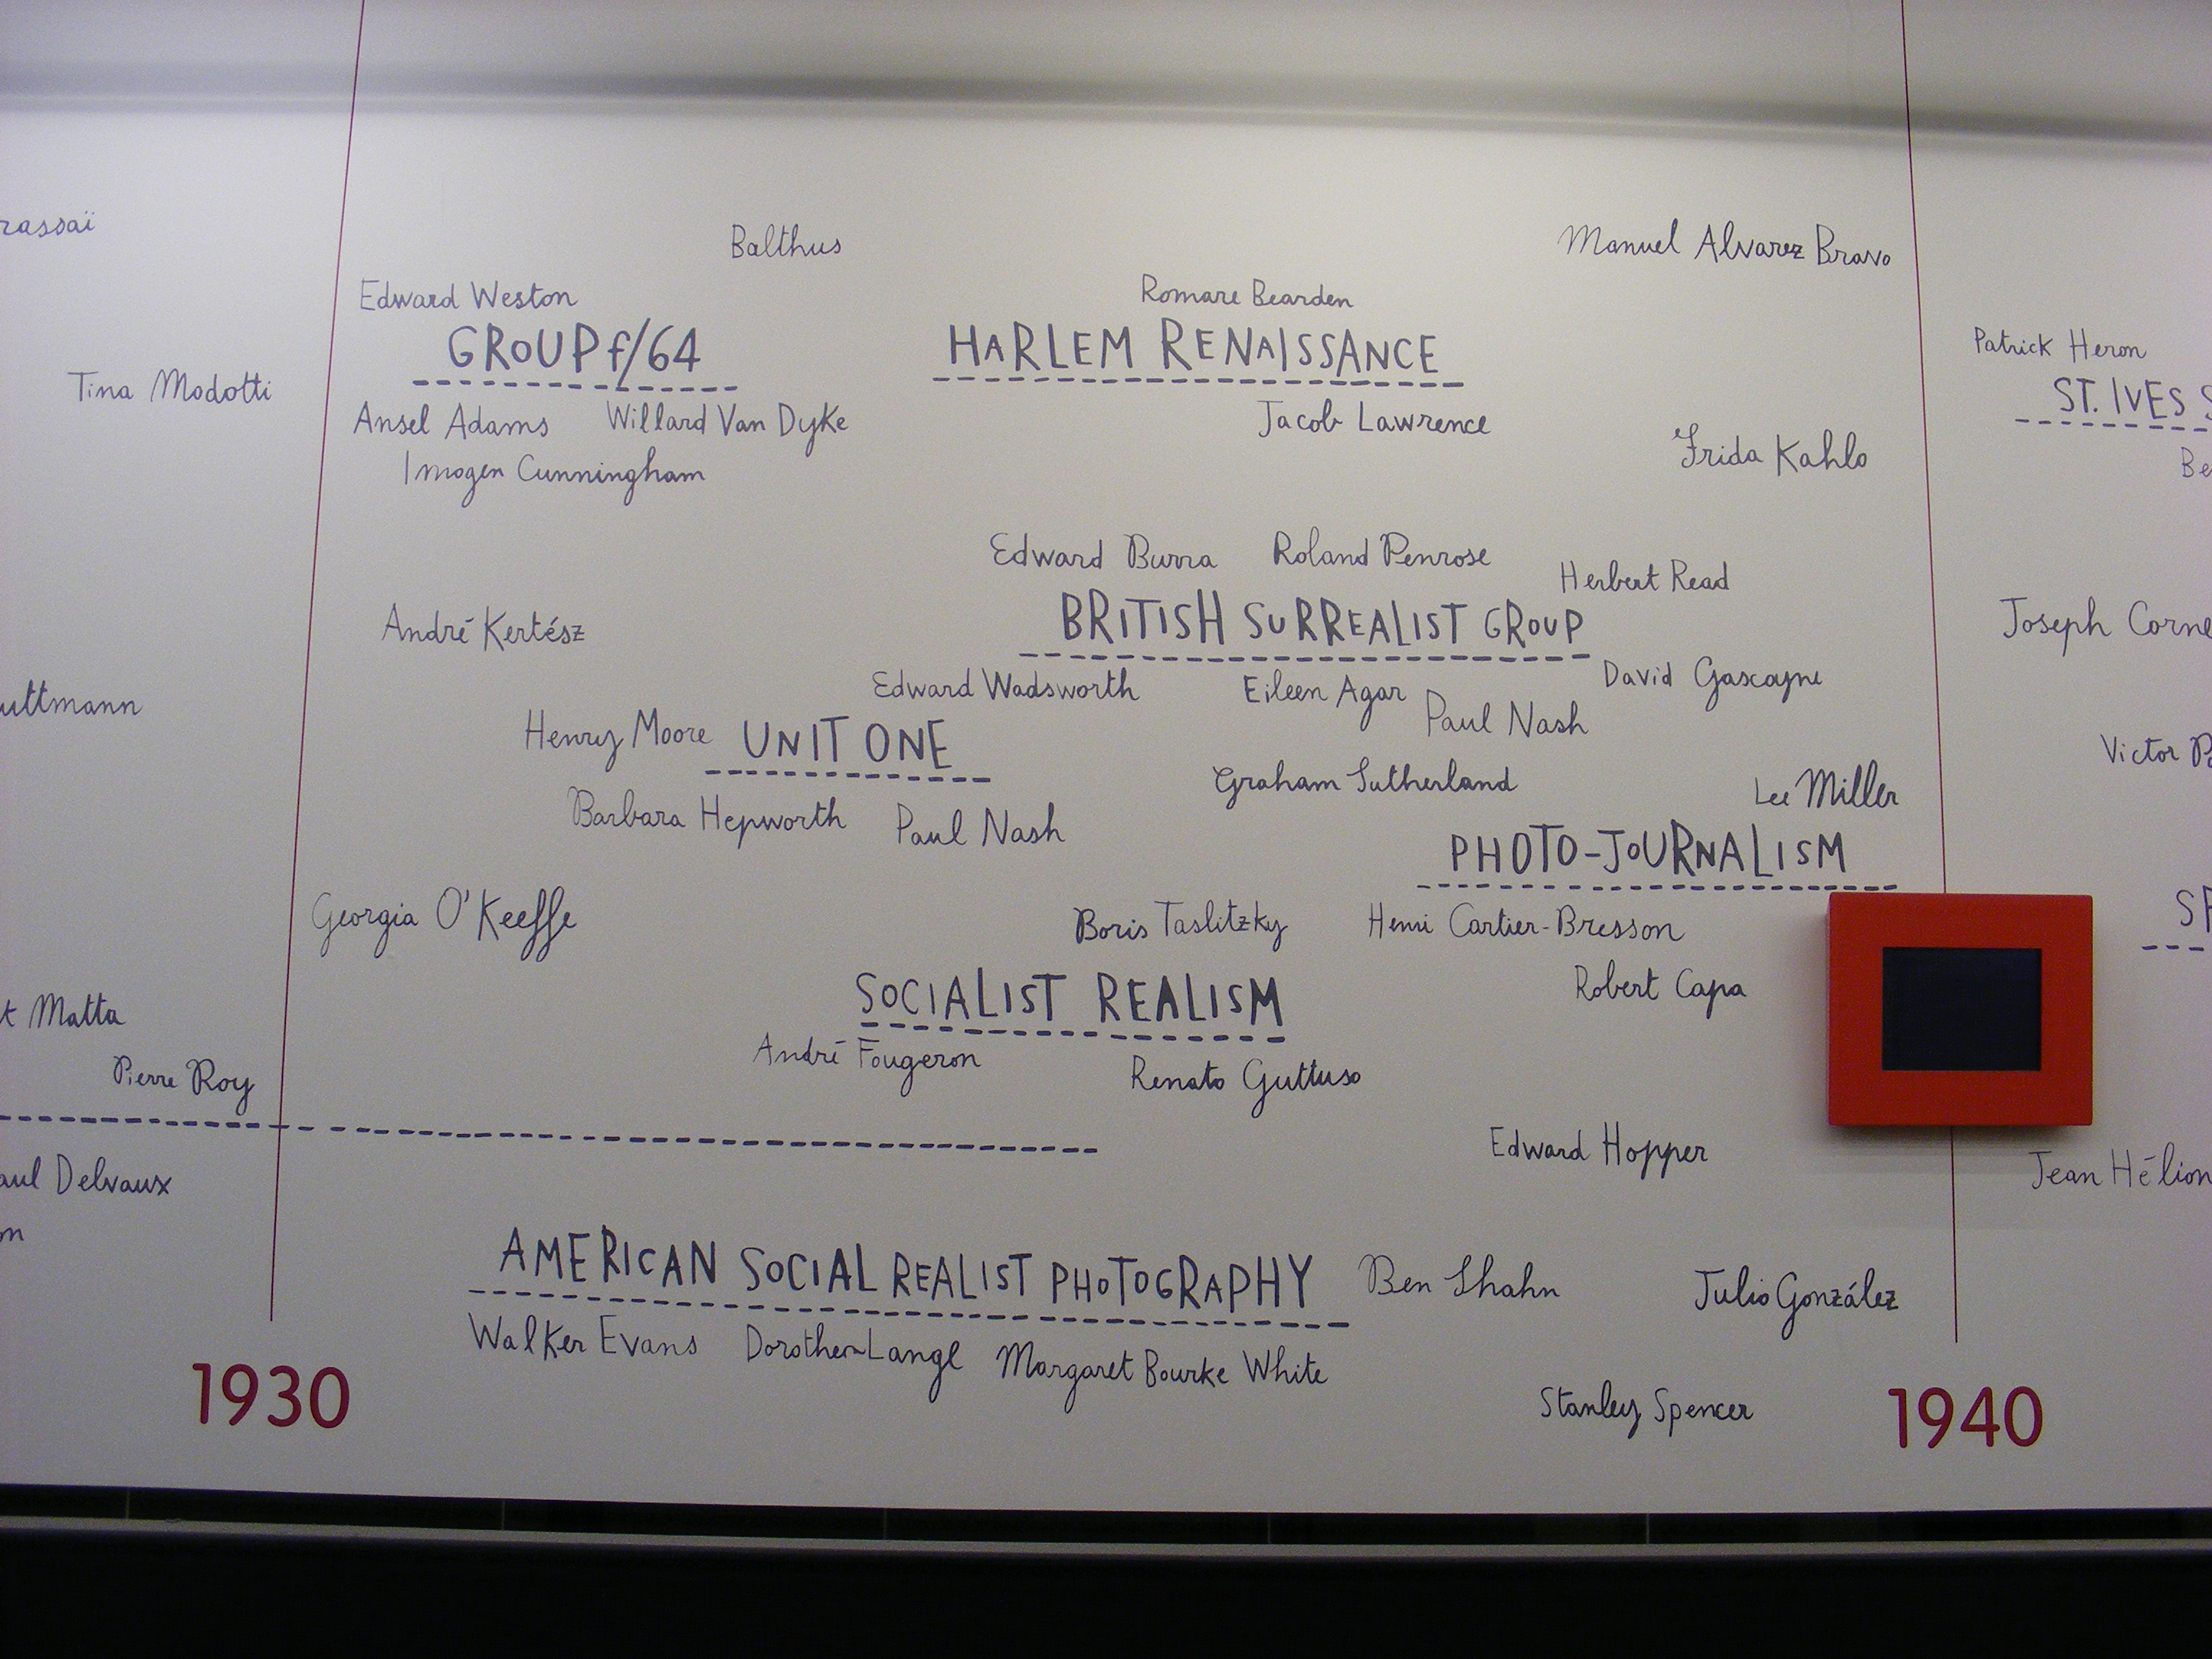 rassaï
Balthus
Manuel Alvarez Bravo
Edward Weston
Romare Bearden
GROUP f/64
HARLEM RENAISSANCE
Patrick Heron
Tina Modotti
ST. IVES S
Ansel Adams
Willard Van Dyke
Jacob Lawrence
Imogen Cunningham
Frida Kahlo
Be
Edward Burra
Roland Penrose
Herbert Read
BRITISH SURREALIST GROUP
André Kertész
Joseph Corne
Edward Wadsworth
Eileen Agar
David Gascoyne
uttmann
Paul Nash
Henry Moore
UNIT ONE
Victor P
Graham Sutherland
Lee Miller
Barbara Hepworth
Paul Nash
PHOTO-JOURNALISM
Georgia O'Keeffe
Boris Taslitzky
Henri Cartier-Bresson
SP
Robert Capa
SOCIALIST REALISM
t Matta
André Fougeron
Renato Guttuso
Pierre Roy
Edward Hopper
aul Delvaux
Jean Hélion
n
AMERICAN SOCIAL REALIST PHOTOGRAPHY
Ben Shahn
Julio González
Walker Evans
Dorothea Lange
Margaret Bourke White
Stanley Spencer
1930
1940